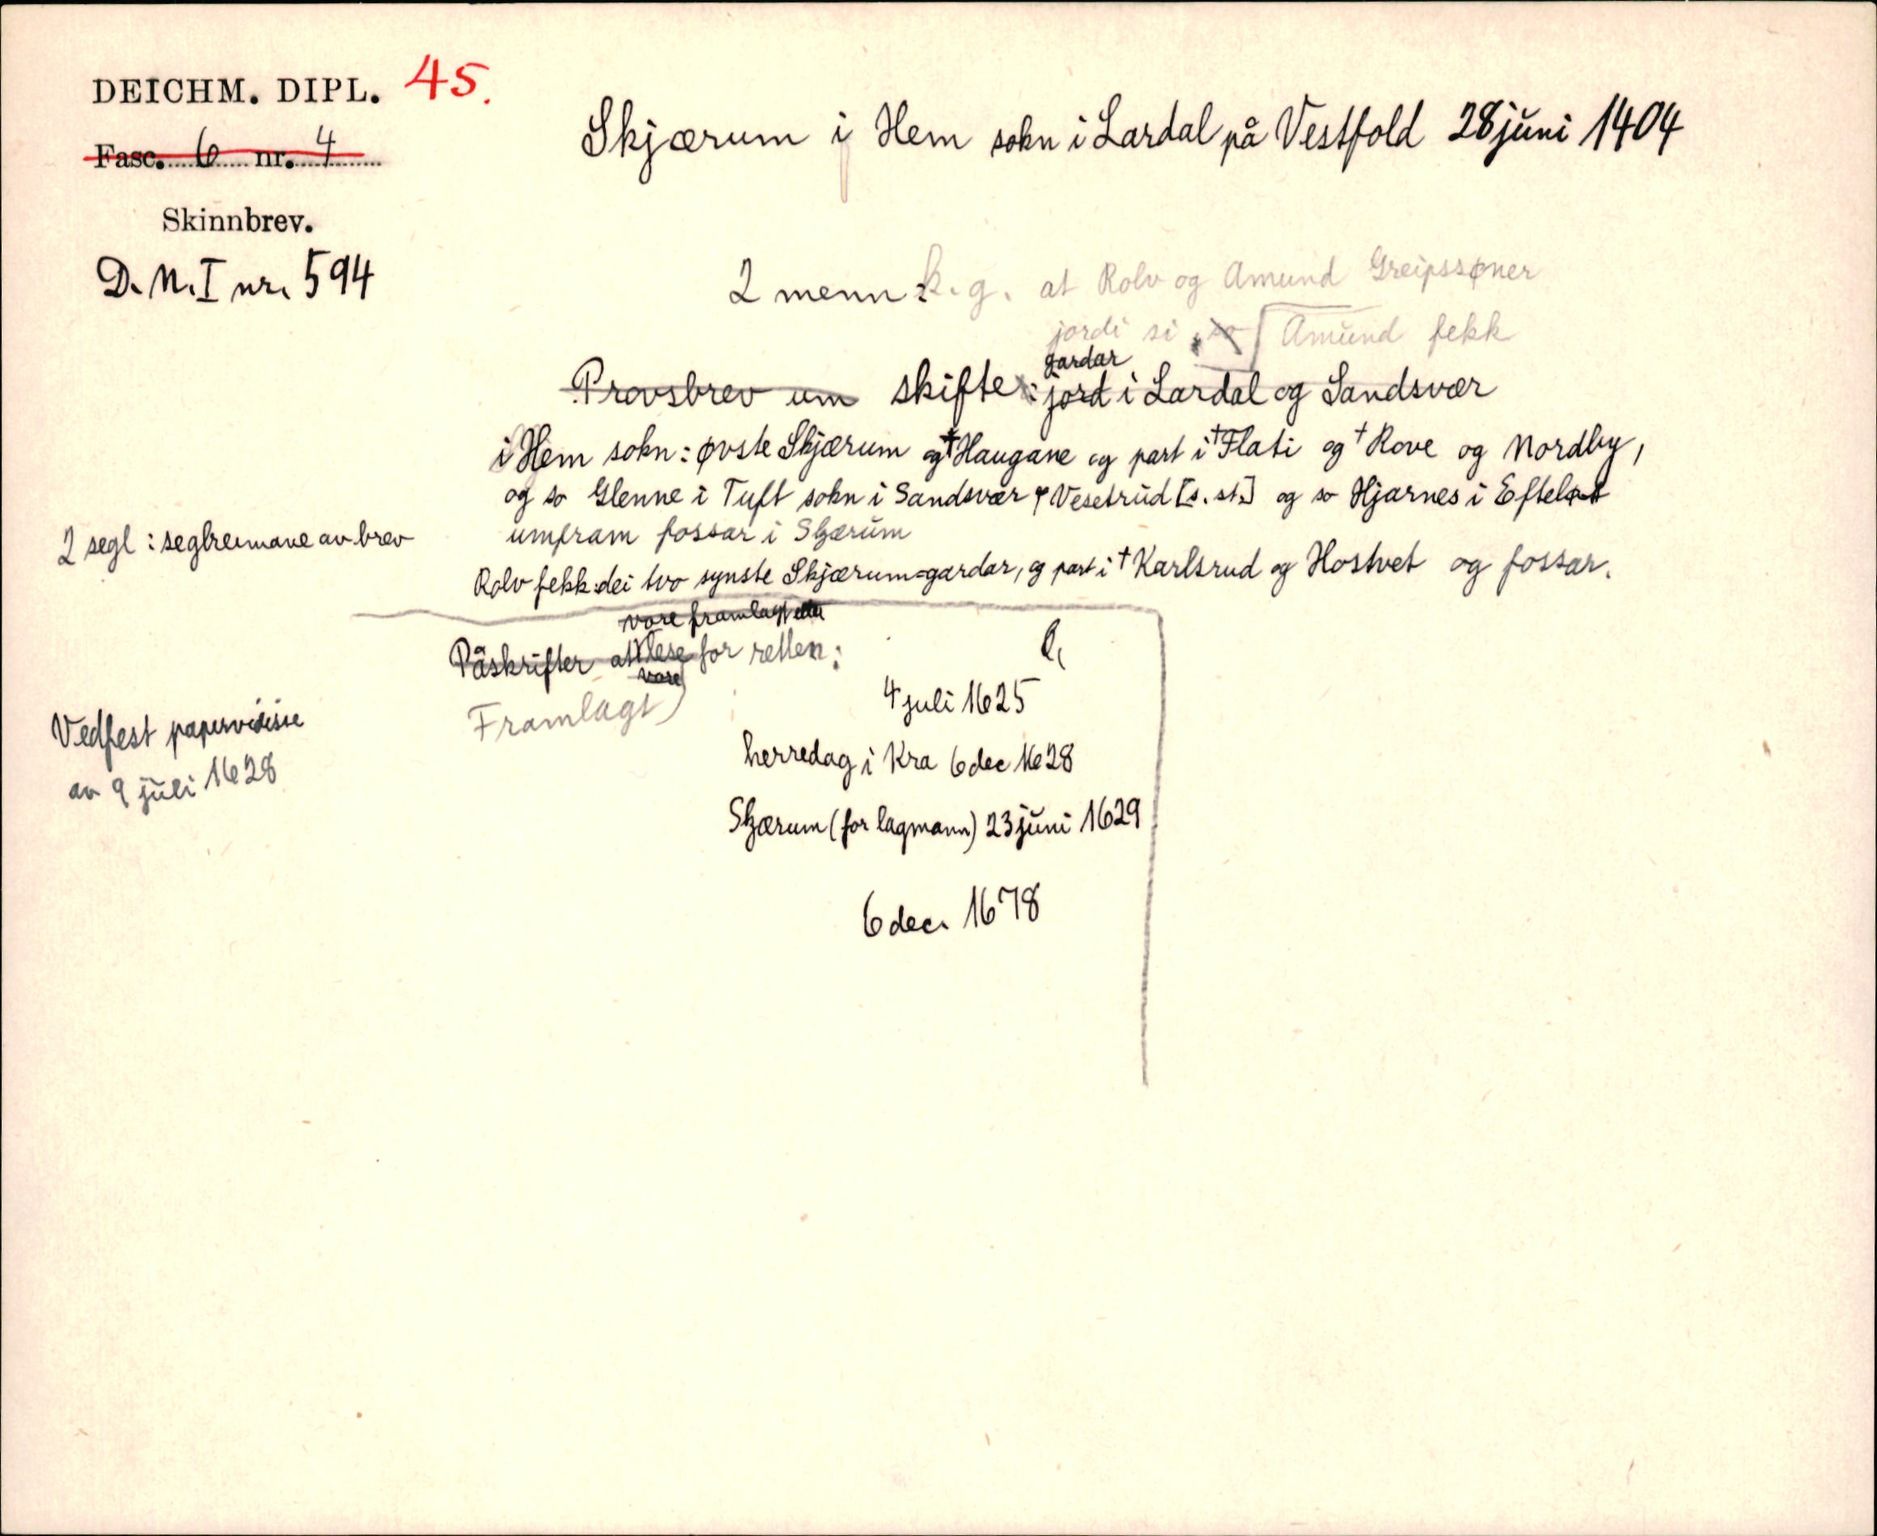 DEICHM. DIPL. 45.
Fasc. 6 nr. 4
Skinnbrev.
D.N. I nr. 594
Skjærum i Hem sokn i Lardal på Vestfold 28 juni 1404
2 menn k.g. at Rolv og Amund Greipssøner
jordi si, so Amund fekk
gardar
Provsbrev um skifte: jord i Lardal og Sandsvær
i Hem sokn: øvste Skjærum og †Haugane og part i †Flati og †Rove og Nordby,
og so Glenne i Tuft sokn i Sandsvær, Vesetrud [s. st.] og so Hjarnes i Efteløt
umfram fossar i Skjærum
Rolv fekk dei tvo synste Skjærum-gardar, og part i †Karlsrud og Hostvet og fossar.
2 segl: seglreimane av brev
vore framlagt eller
Påskrifter at lese for retten:
vore
Framlagt
4 juli 1625
herredag i Kra 6 dec 1628
Skjærum (for lagmann) 23 juni 1629
6 dec. 1678
Vedfest papirvidisse
av 9 juli 1628